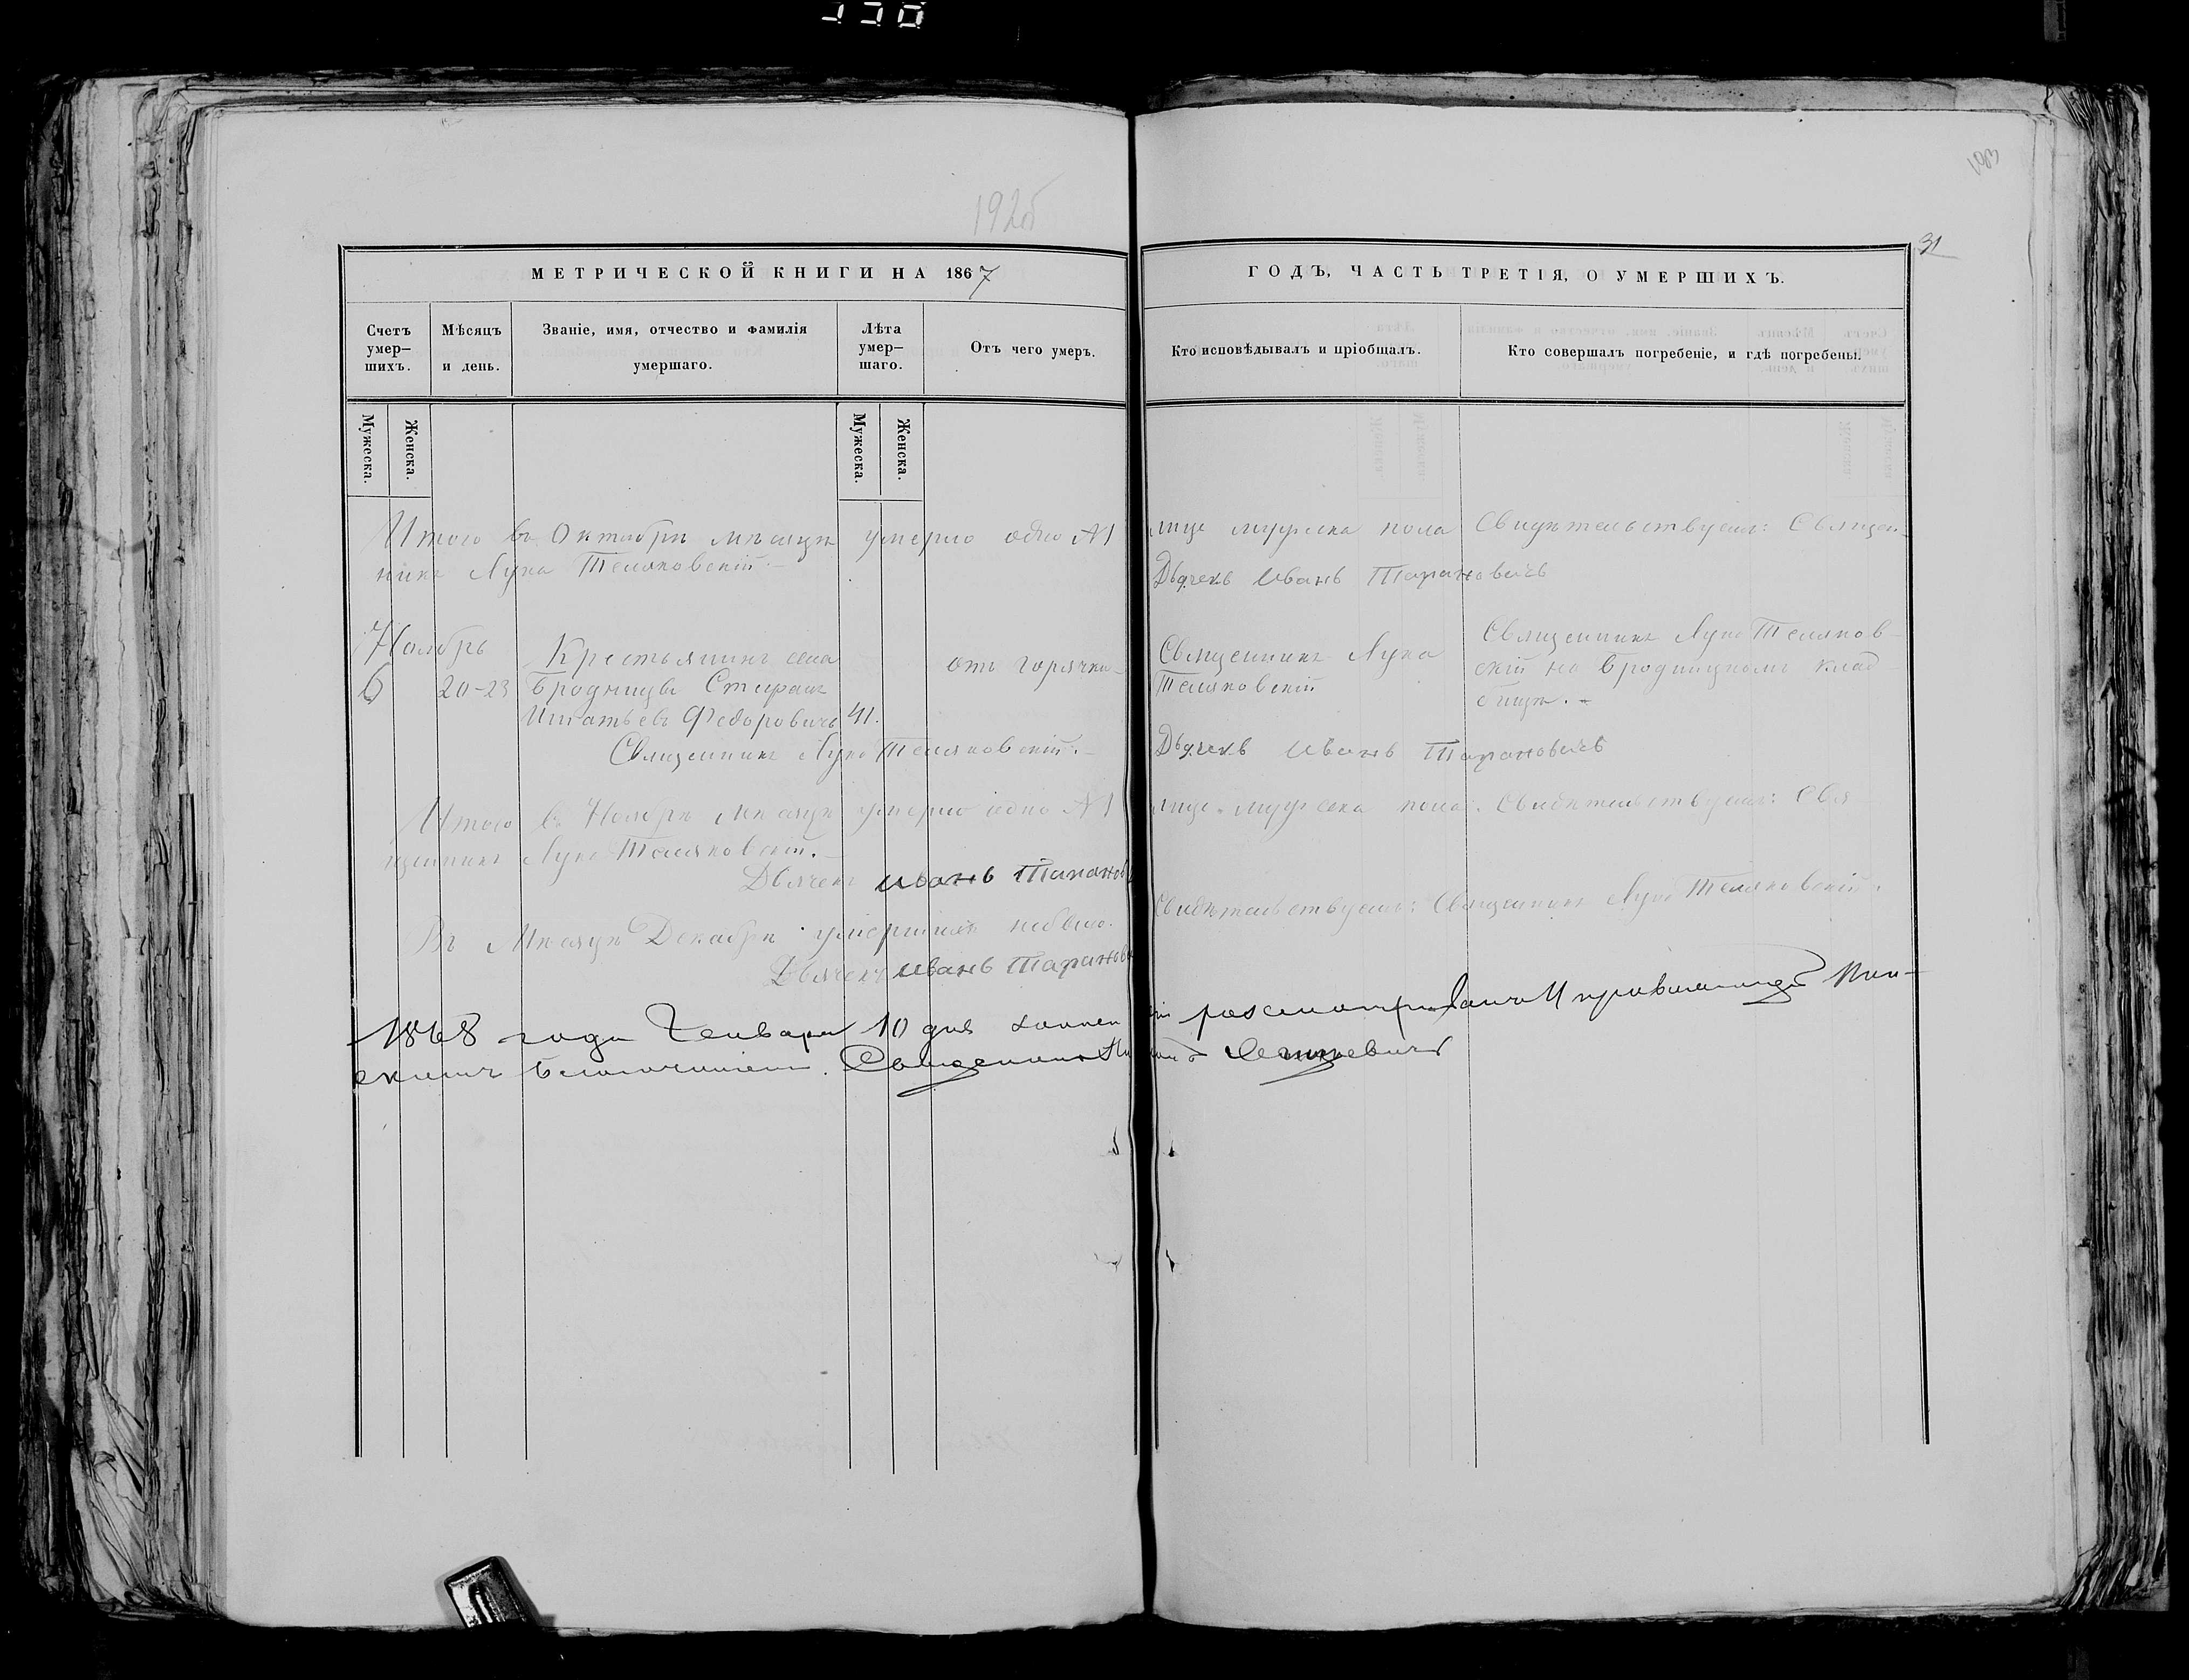 192об
193
31
МЕТРИЧЕСКОЙ КНИГИ НА 1867
ГОДЪ, ЧАСТЬ ТРЕТІЯ, О УМЕРШИХЪ.
Счетъ умер-шихъ.
Мѣсяцъ и день.
Званіе, имя, отчество и фамилія умершаго.
Лѣта умер-шаго.
Отъ чего умеръ.
Кто исповѣдывалъ и пріобщалъ.
Кто совершалъ погребеніе, и гдѣ погребены.
Мужеска.
Женска.
Мужеска.
Женска.
Итого въ Октябрѣ мѣсяцѣ умерло одно №1 лице мужеска пола Свидѣтельствуемъ: Священ-
никъ Лука Теляковскій.- Дьячекъ Иванъ Тарановичъ
Ноябрь
6 20-23 Крестьянинъ села
Бродницы Стефанъ
Игнатьевъ Федоровичъ 41.
отъ горячки-
Священникъ Лука
Теляковскій
Священникъ Лука Теляков-
скій на Бродницкомъ клад-
бищѣ.-
Священникъ Лука Теляковскій.- Дьячекъ Иванъ Тарановичъ
Итого въ Ноябрѣ мѣсяцѣ умерло одно №1 лице мужеска пола. Свидѣтельствуемъ: Свя
щенникъ Лука Теляковскій.-
Дьячекъ Иванъ Таранов
Въ Мѣсяцѣ Декабрѣ умершихъ небыло. Свидѣтельствуемъ: Священникъ Лука Теляковскій.
Дьячекъ Иванъ Таранов
1868 года Генваря 10 дня разсматривалъ Управляющій Пин-
скимъ Благочиніемъ. Священникъ